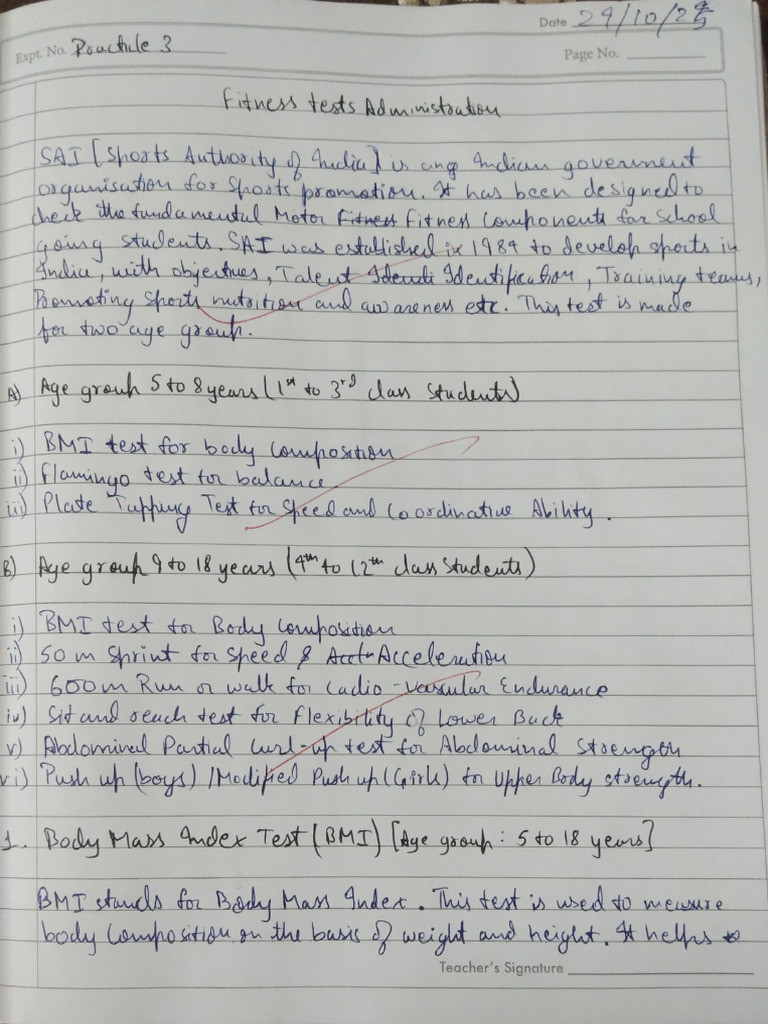 Date 29/10/25
Expt. No. Practile 3
Page No.
Fitness tests Administration
SAI [Sports Authority of India] is ang Indian government
organisation for sports promotion. It has been designed to
check the fundamental Motor Fitness Fitness Components for School
going students. SAI was established in 1984 to develop sports in
India, with objectives, Talent Identi Identification, Training teams,
Promoting sports nutrition and awareness etc. This test is made
for two age group.
A) Age group 5 to 8 years (1st to 3rd class Students)
i) BMI test for body composition
ii) Flamingo test for balance
iii) Plate Tapping Test for Speed and Coordinative Ability.
B) Age group 9 to 18 years (4th to 12th class Students)
i) BMI test for Body Composition
ii) 50 m Sprint for speed & Acceleration
iii) 600m Run or walk for Cadio-vascular Endurance
iv) Sit and reach test for Flexibility of Lower Back
v) Abdominal Partial Curl-up test for Abdominal Strength
vi) Push up (boys) / Modified Push up (Girls) for Upper Body strength.
1. Body Mass Index Test (BMI) [Age group: 5 to 18 years]
BMI stands for Body Mass Index. This test is used to measure
body Composition on the basis of weight and height. It helps to
Teacher's Signature